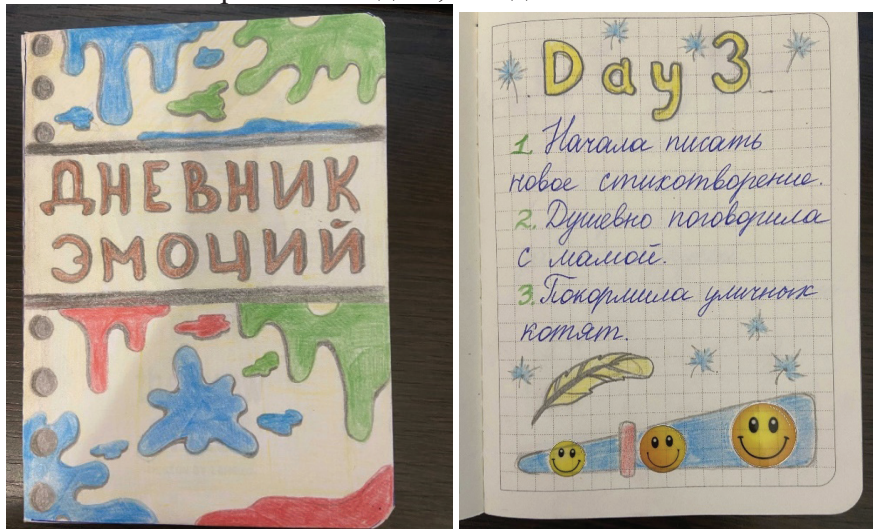 ДНЕВНИК
ЭМОЦИЙ
Day 3
1. Начала писать
новое стихотворение.
2. Душевно поговорила
с мамой.
3. Покормила уличных
котят.